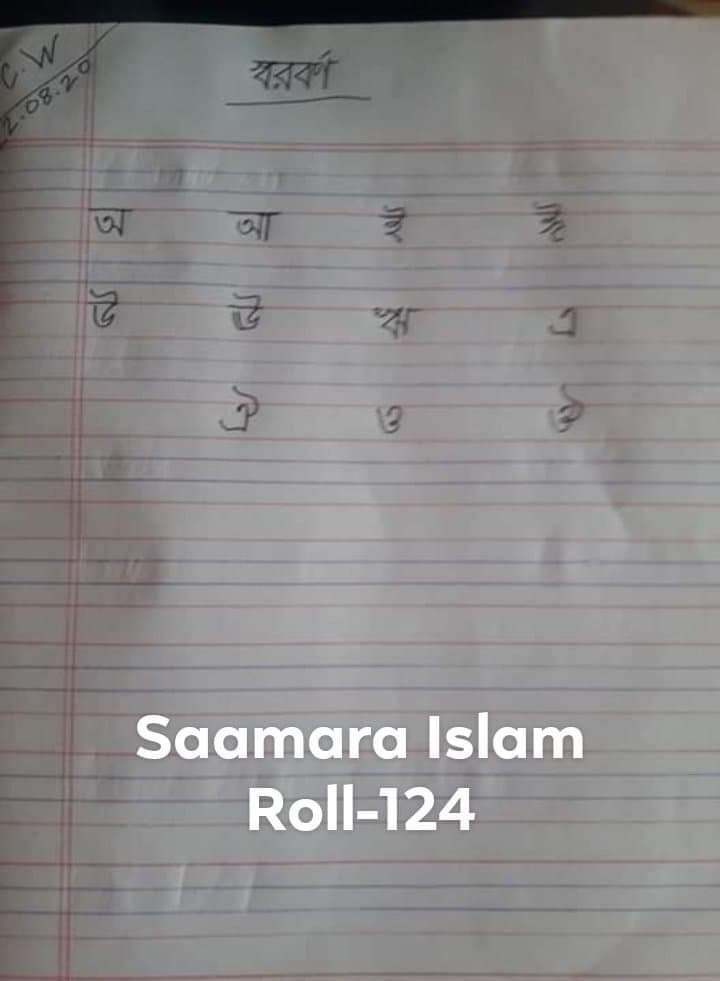 C.W
2.08.20
স্বরবর্ণ
অ আ ই ঈ
উ ঊ ঋ এ
ঐ ও ঔ
Saamara Islam
Roll-124